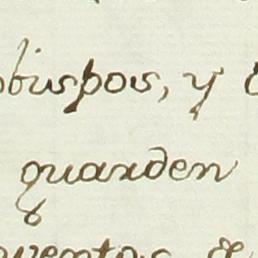 obispos, y
guarden
ventos, de